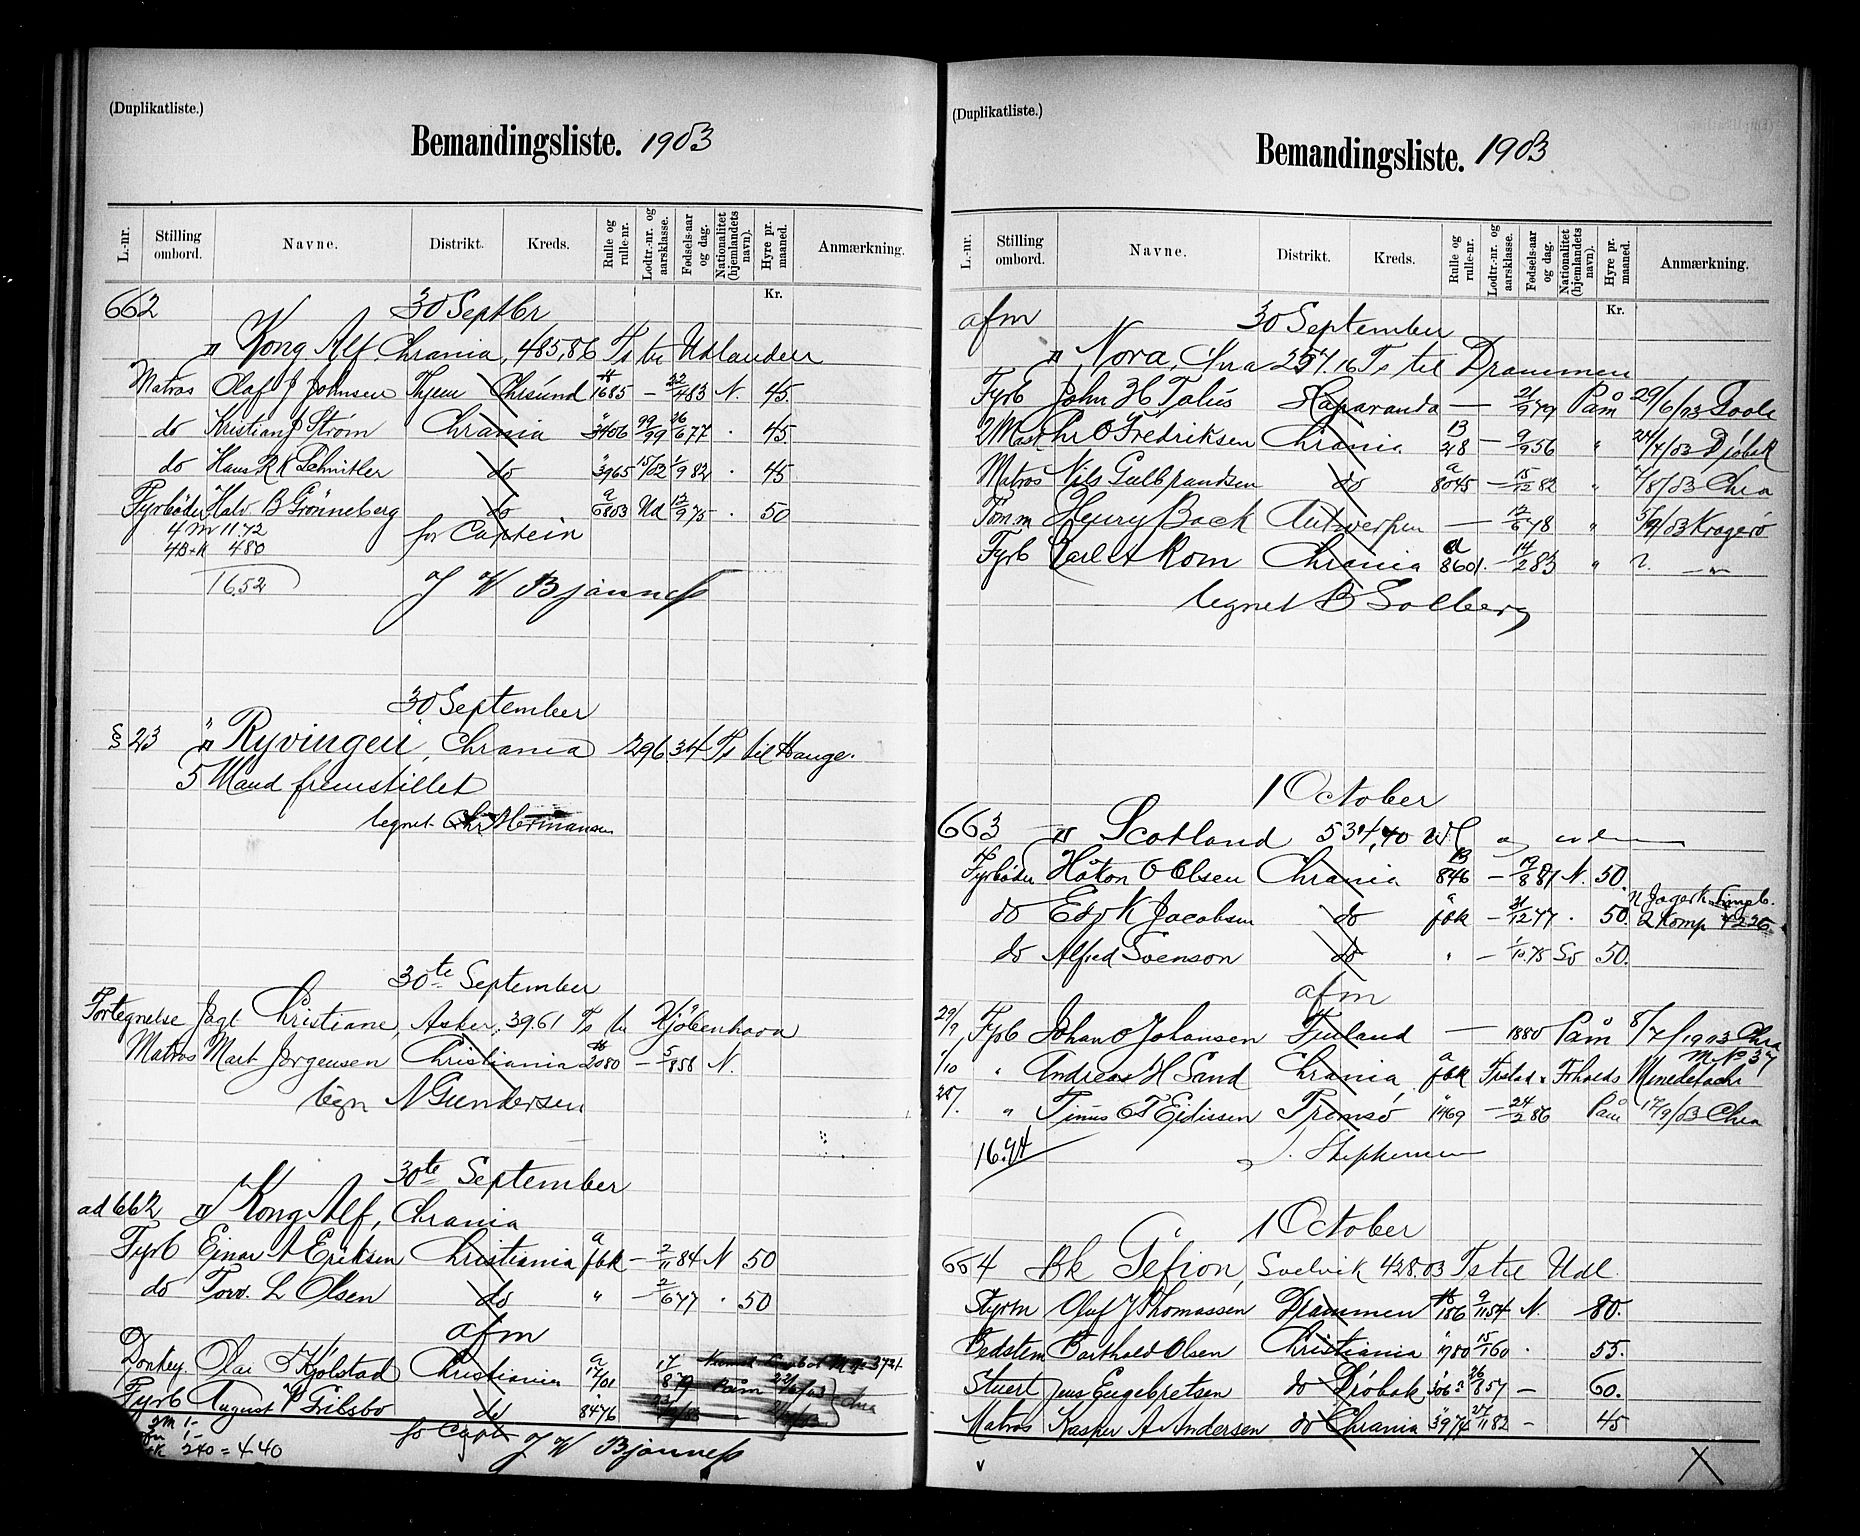 (Duplikatliste.)
Bemandingsliste. 1903
L.-nr. Stilling ombord. Navne. Distrikt. Kreds. Rulle og rulle-nr. Lodtr.-nr. og aarsklasse. Fødsels-aar og dag. Nationalitet (hjemlandets navn). Hyre pr. maaned. Anmærkning.
Kr.
662 30 Septbr
Kong Alf Chrania, 485,86 Ts til Udlandet
Matros Olaf J Johnsen Chrsund 1685 — 22/4 83 N. 45.
do Kristian J Strøm Chrania 3406 99/99 26/6 77 . 45.
do Hans R K Schnitler do 3965 15/02 1/9 82 . 45
Fyrbøder Halv B Grønneberg do a 6803 Ud 12/9 75 . 50
4 M 11.72 for Captein
480
16.52 J W Bjønness
30 September
§ 23 " Ryvingen, Chrania 296 34 Ts til Hauge.
5 Mand fremstillet
tegnet Chr Hermansen
30te September
Fortegnelse Jagt Christiane, Asker, 39.61 Ts til Kjøbenhavn
Matros Mart Jørgensen Christiania 2080 — 5/8 58 N.
tegn N Gundersen
30te September
ad 662 Kong Alf, Chrania
Fyrb Einar A Eriksen Christiania a fbk — 2/11 84 N 50
do Torv. L Olsen do " — 2/6 77 . 50
afm
Donkey. Olai Kjølstad Christiania a 1701 17/8 79
Fyrb August Gribsbo do 8476
for Capt J W Bjønness
240 = 4.40
(Duplikatliste.)
Bemandingsliste. 1903
L.-nr. Stilling ombord. Navne. Distrikt. Kreds. Rulle og rulle-nr. Lodtr.-nr. og aarsklasse. Fødsels-aar og dag. Nationalitet (hjemlandets navn). Hyre pr. maaned. Anmærkning.
Kr.
afm 30 September
" Nora, Chra 257.16 Ts til Drammen
Fyrb John H Talus Haparanda — 21/9 79 Påm 29/6/03 Goole
2 Mast Chr O Fredriksen Chrania 13 28 — 9/9 56 " 24/7/03 Drøbak
Matros Nils Gulbrandsen do a 8045 — 15/12 82 " /8/03 Chra
Tømm Henry Back Antwerpen — 12/6 78 " 5/9/03 Kragerø
Fyrb Carl A Rom Chrania a 8601. — 14/2 83 " — " —
tegnet B Solberg
1 October
663 " Scotland 534,40
Fyrbøder Håkon O Olsen Chrania 13 846 — 19/8 81 N. 50.
do Edv K Jacobsen do fbk — 31/12 77 . 50. 2 Komp
do Alfred Svenson do " — 1/10 75 Sv 50.
afm
29/9, Fyrb Johan O Johansen Finland — 1880 Påm 8/7/1903 Chra
1/10 " Andreas H Sand Chrania, a fbk Forholds M No 37
" Tinus Ejdissen Tromsø 1469 — 24/2 86 Påm 17/9/03 Chra
16.94
1 October
664 Bk Gefion, Svelvik 428.03 Ts til Udl.
Styrm Oluf J Thomassen Drammen 186 9/11 54 N. 80.
Bedstem Barthold Olsen Christiania 1780 15/1 60 . 55.
Stuert Jens Engebretsen do Drøbak 3063 26/8 57 — 60.
Matros Kasper A Andersen do Chrania 3974 27/11 82 — 45
v X